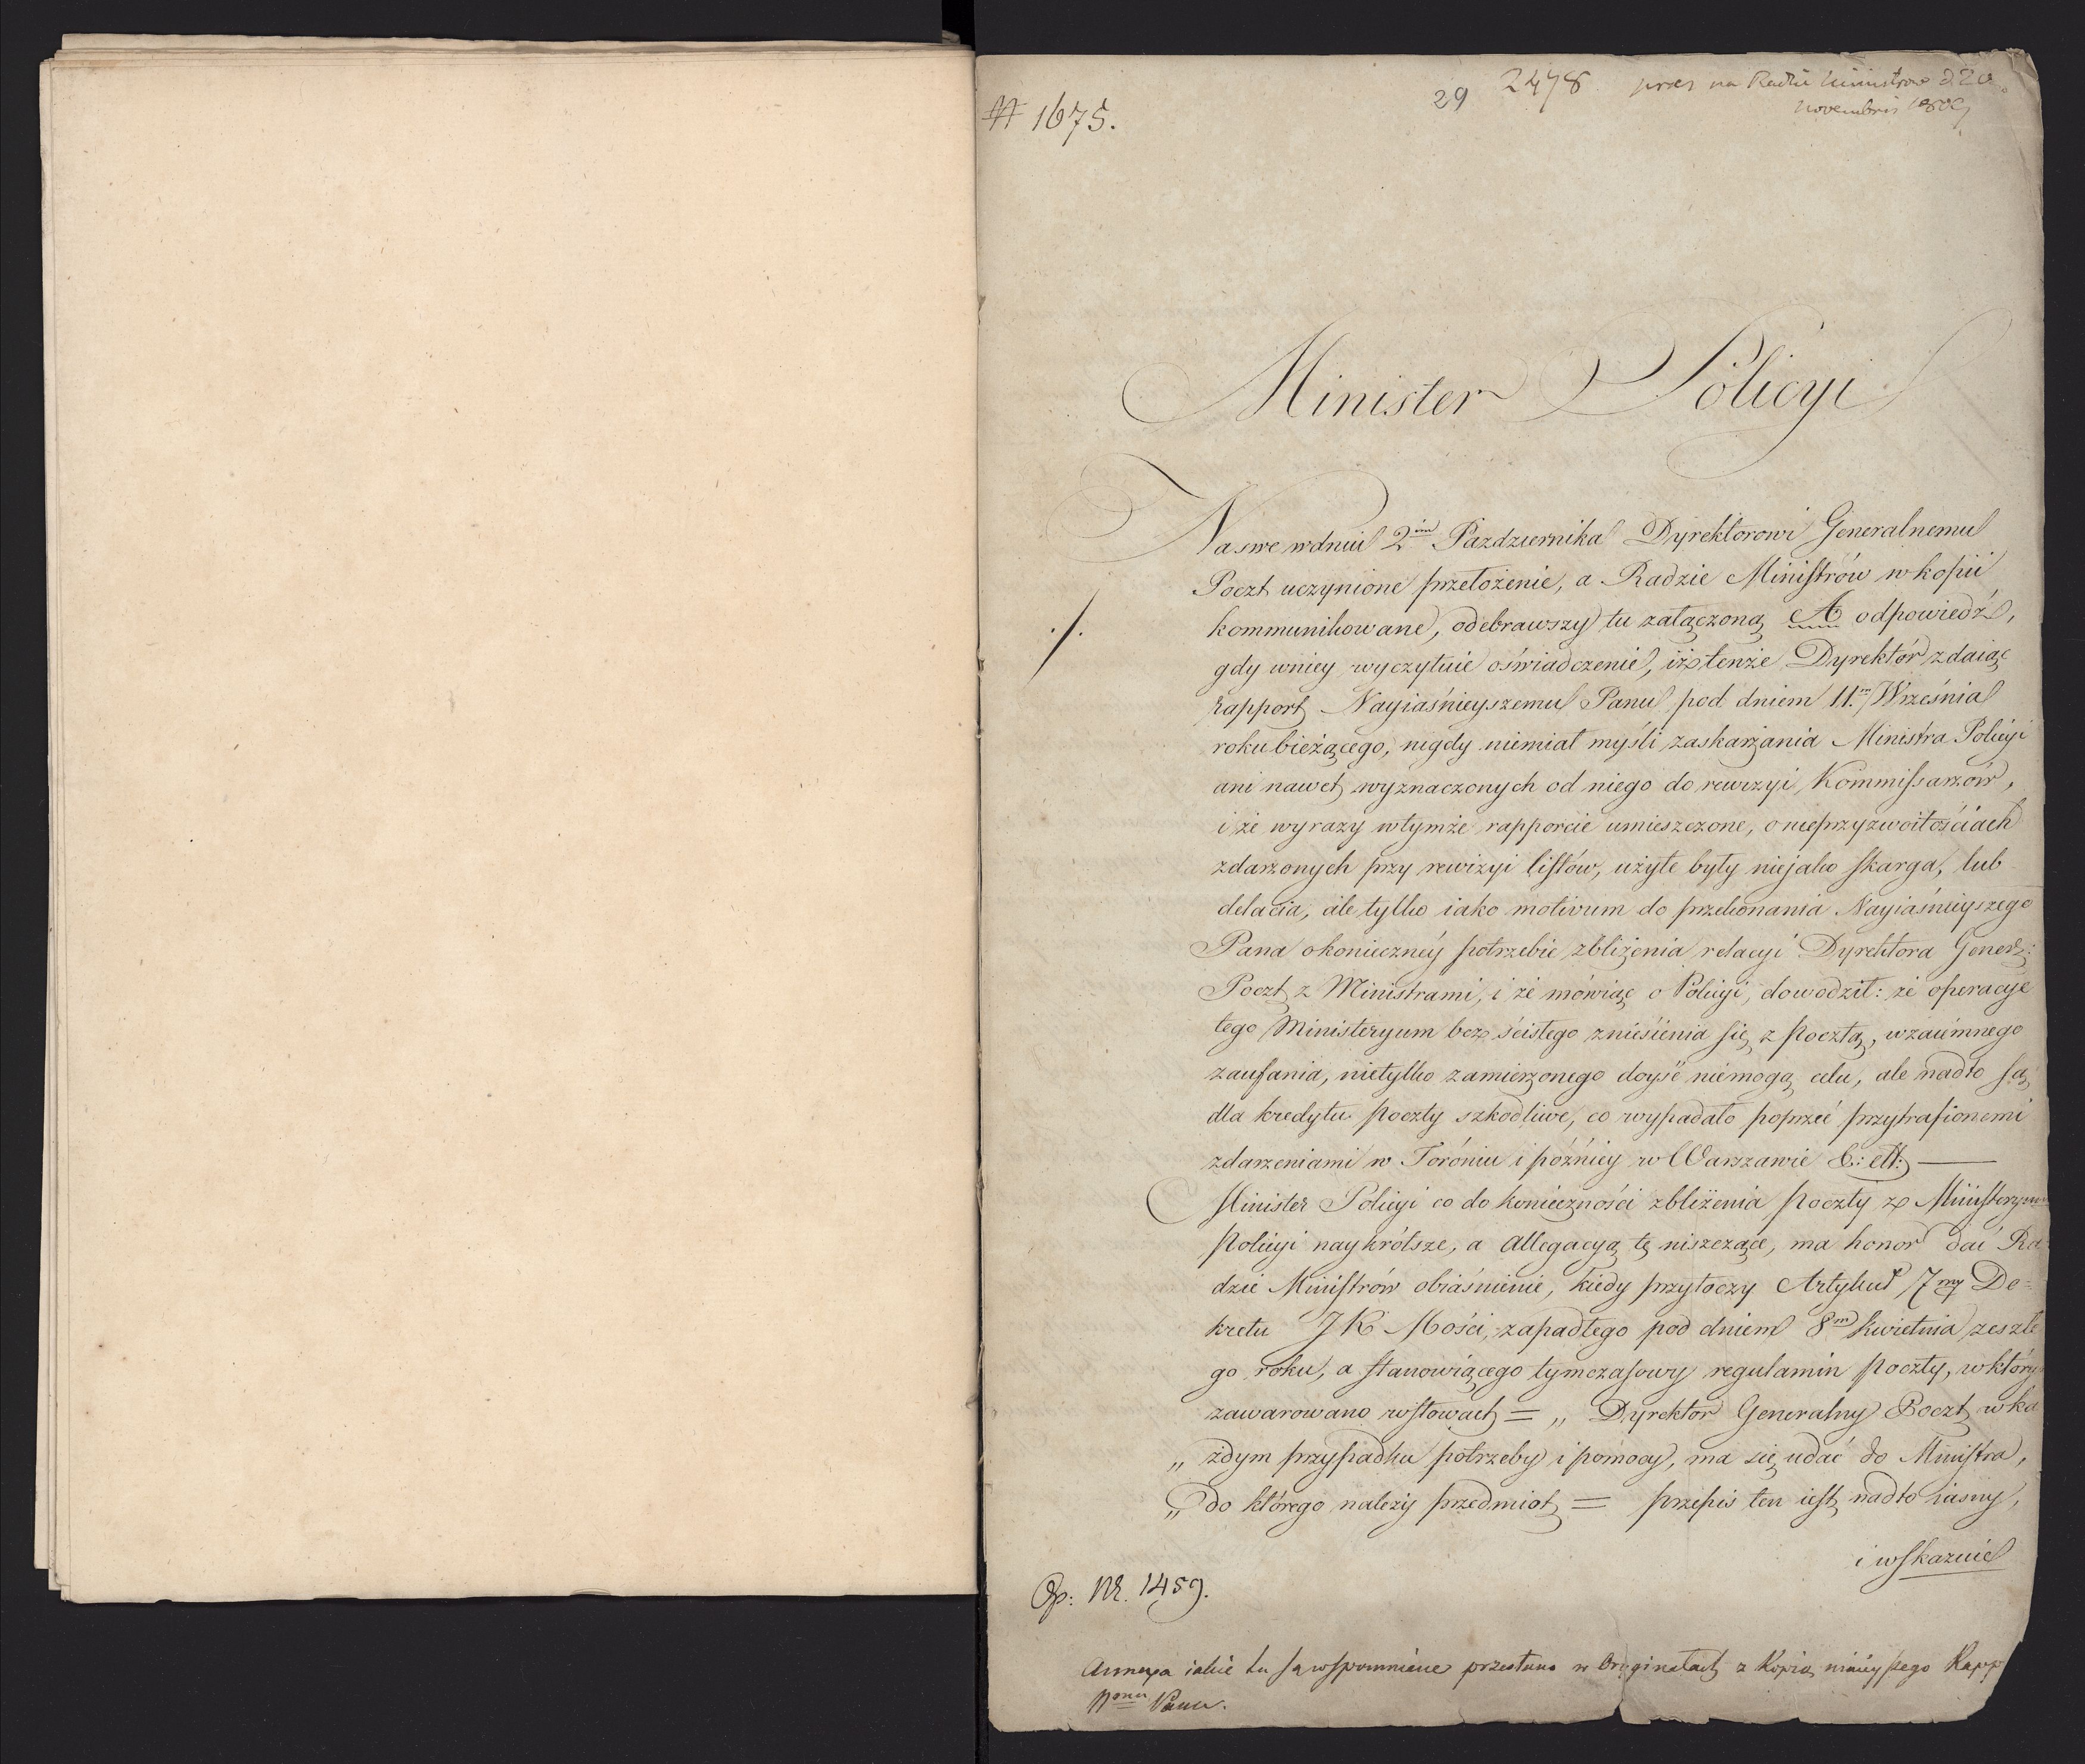 № 1675.
29
2478 przez na Radzie Ministrow d. 20
novembris 1809
Minister Policyi
Na swe w dniu 2im Pazdziernika Dyrektorowi Generalnemu
Poczt uczynione przełożenie, a Radzie Ministrów w kopii
kommunikowane, odebrawszy tu załączoną A odpowiedź,
gdy w niey wyczytuie oświadczenie, iż tenże Dyrektór zdaiąc
rapport Nayiaśnieyszemu Panu pod dniem 11.m Września
roku bieżącego, nigdy niemiał myśli zaskarżania Ministra Policyi
ani nawet wyznaczonych od niego do rewizyi Kommissarzów,
i że wyrazy w tymże rapporcie umieszczone, o nieprzyzwoitościach
zdarzonych przy rewizyi listów, użyte były nie jako skarga, lub
delacia, ale tylko iako motivum do przekonania Nayiaśnieyszego
Pana o konieczney potrzebie zbliżenia relacyi Dyrektora Gener:
Poczt z Ministrami, i że mówiąc o Policyi, dowodził: że operacye
tego Ministeryum bez ścisłego zniesienia się z pocztą, wzaiemnego
zaufania, nietylko zamierzonego doyść niemogą celu, ale nadto są
dla kredytu poczty szkodliwe, co wypadało poprzeć przytrafionemi
zdarzeniami w Toróniu i późniey w Warszawie &: ett:
Minister Policyi co do konieczności zbliżenia poczty z Ministeryum
Policyi naykrótsze, a allegacyą tę niszczące, ma honor dać Ra
dzie Ministrów obiaśnienie, kiedy przytoczy Artykuł 7my De=
kretu JK Mości, zapadłego pod dniem 8m kwietnia zeszłe
go roku, a stanowiącego tymczasowy regulamin poczty, w który
zawarowano w słowach = „ Dyrektor Generalny Poczt w ka
„ żdym przypadku potrzeby i pomocy, ma się udać do Ministra,
„ do którego należy przedmiot = przepis ten iest nadto iasny,
i wskazuie
Op: Nr. 1459.
Annexa iakie tu są wspomnione przesłano w Oryginałach z Kopią ninieyszego Rapp
Nmu Panu.